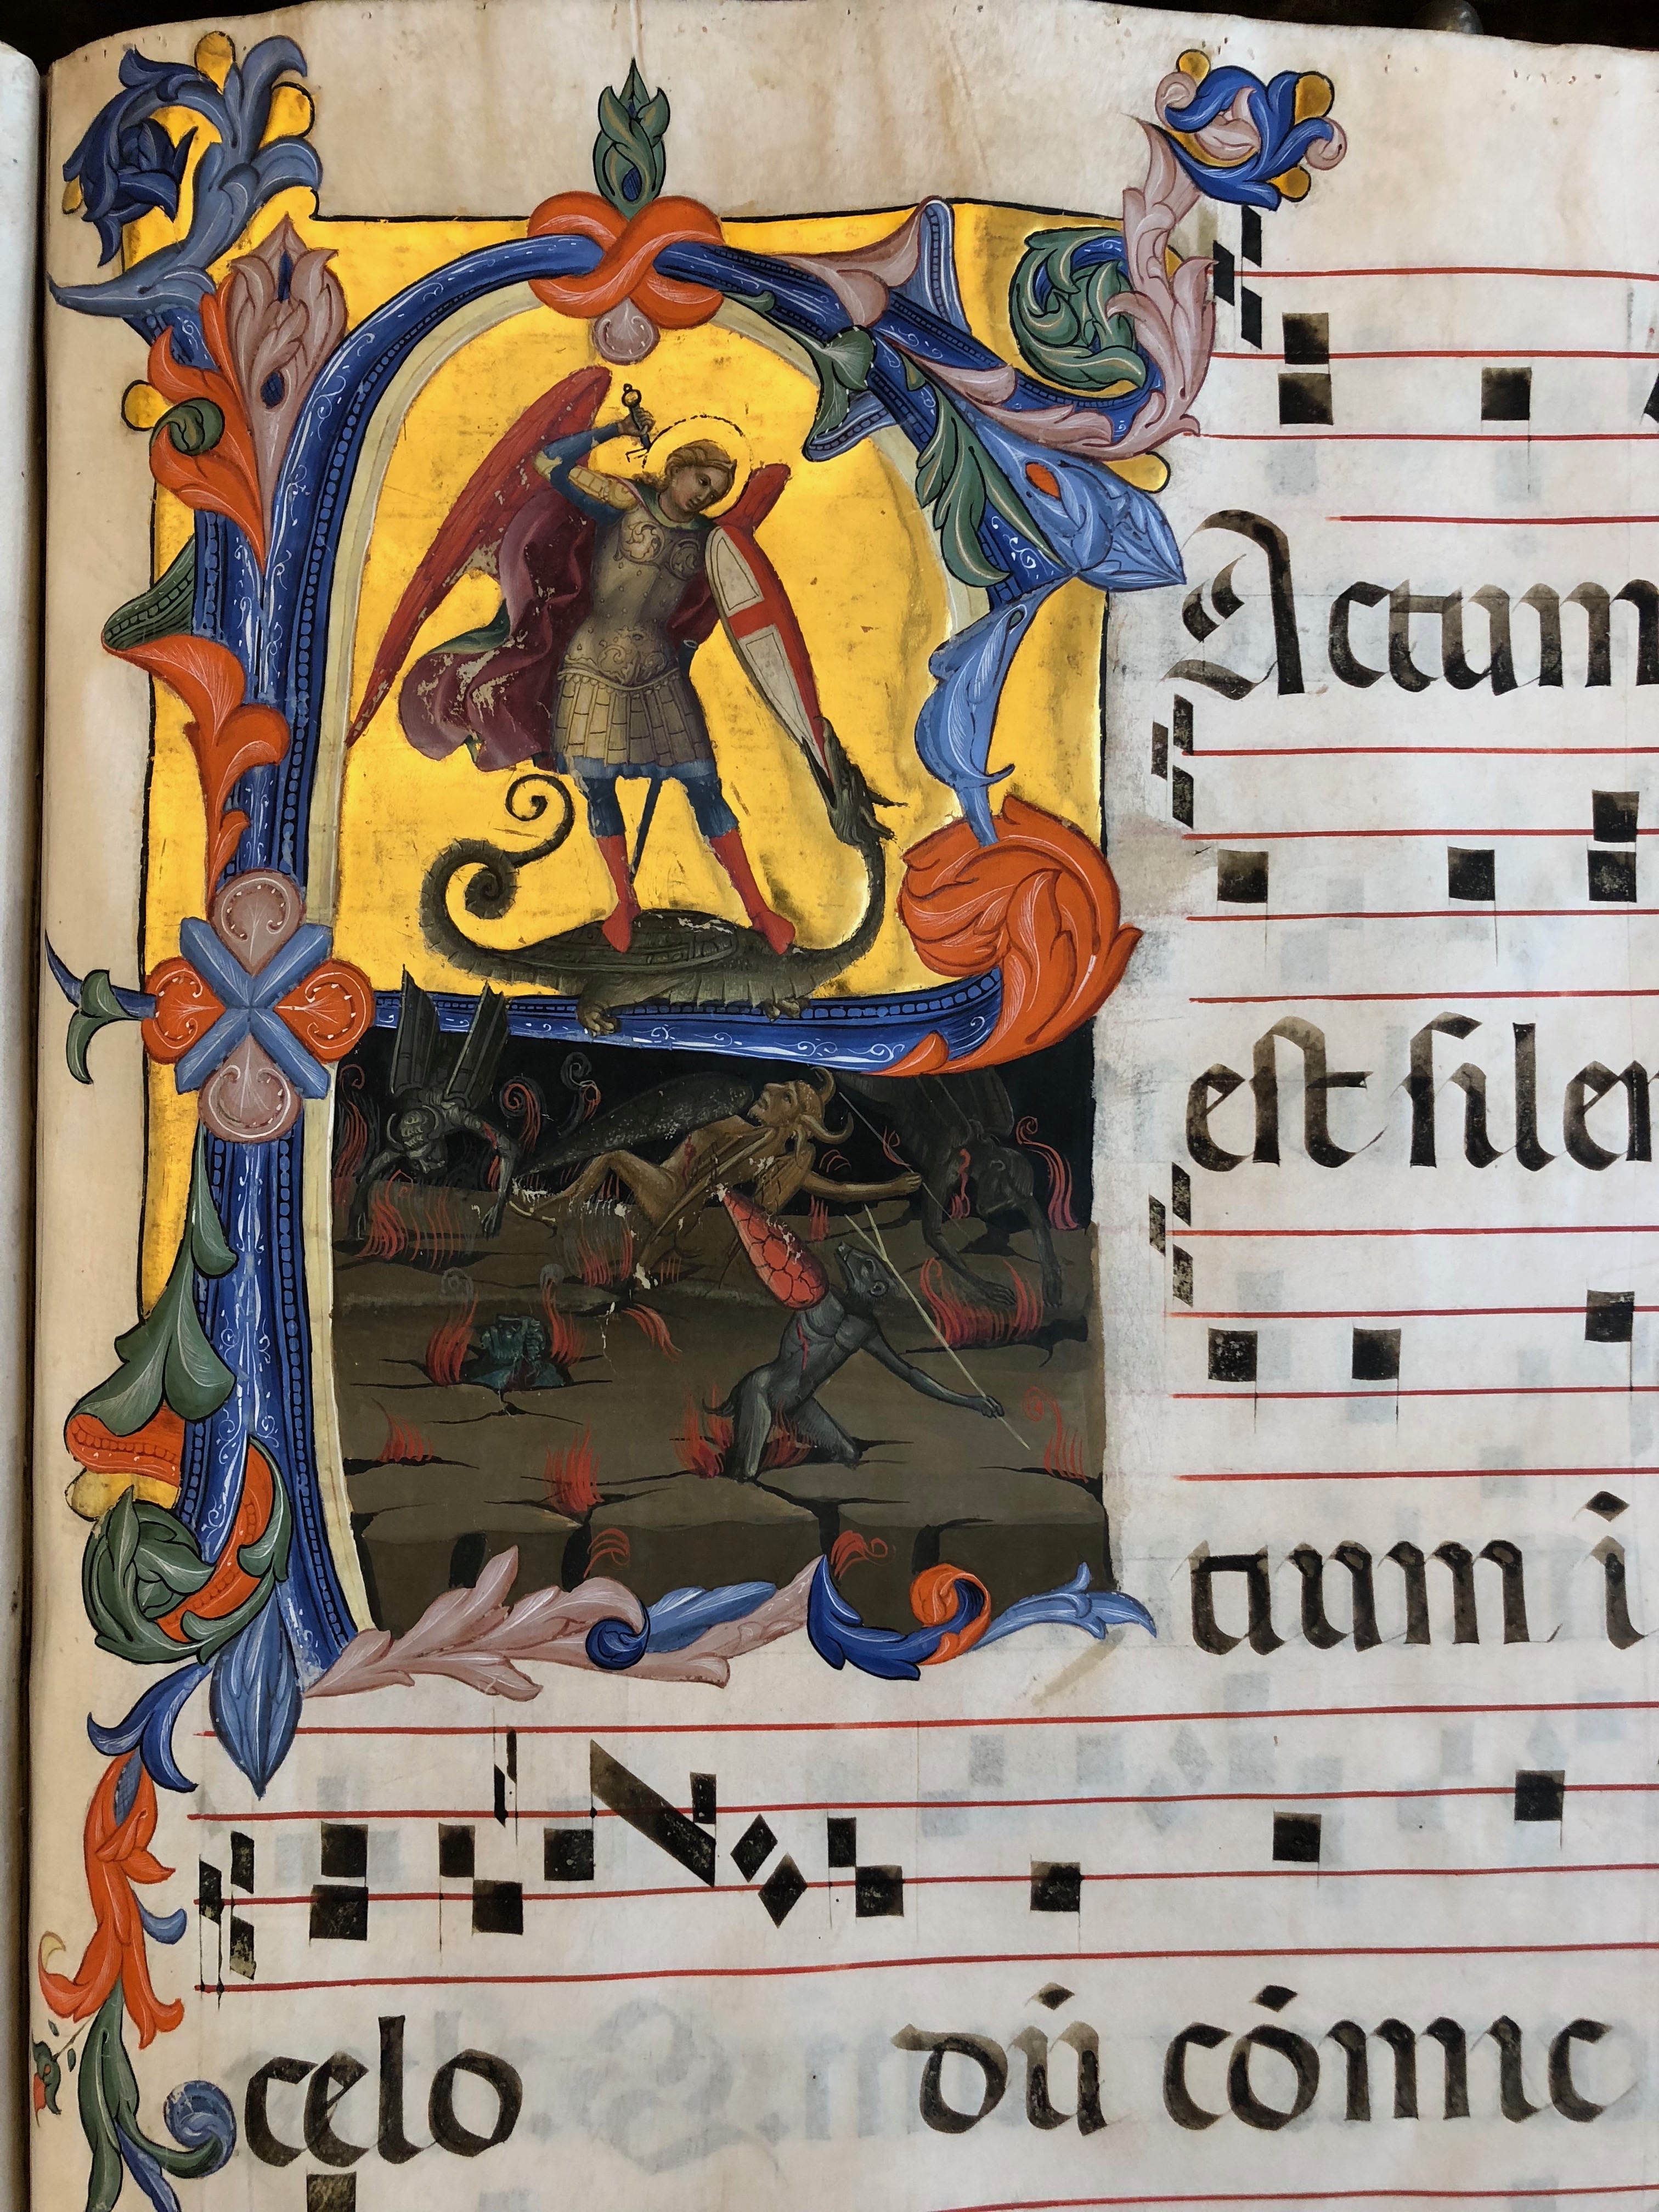 FActum
est silen
tium i
celo dū cómic